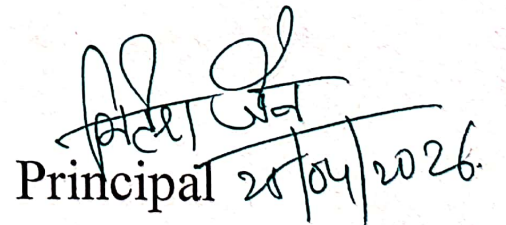 जैन
Principal 20/04/2026.